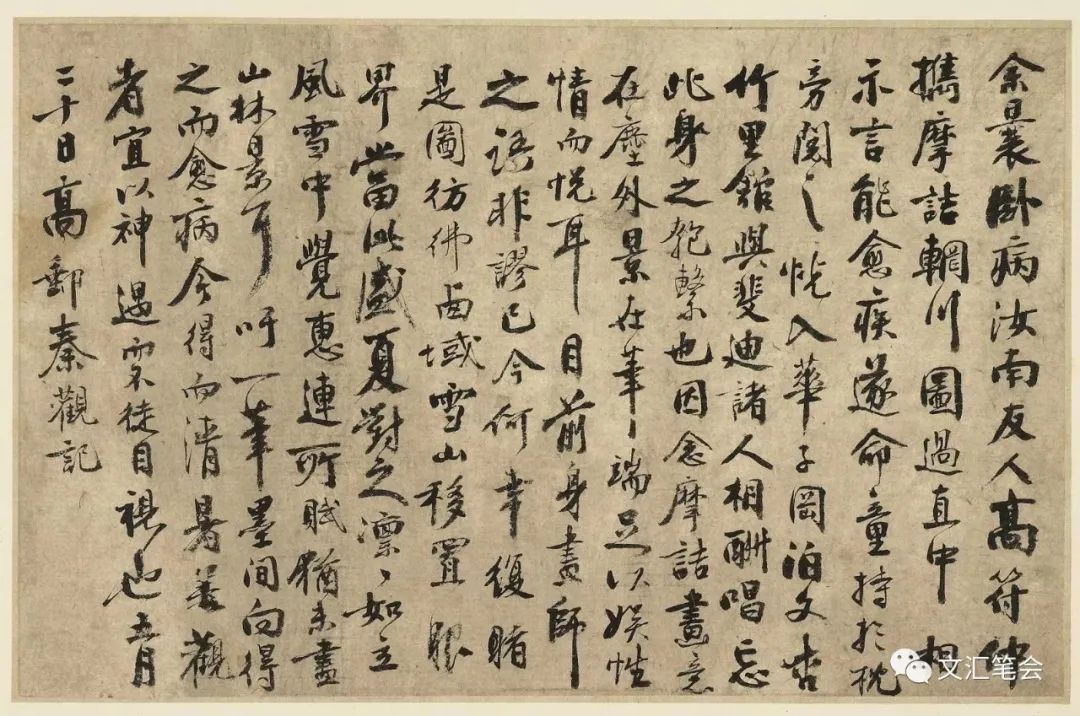 余曩卧病汝南友人高符仲
攜摩詰輞川圖過直中相
示言能愈疾遂命童持於枕
旁閱之恍入華子岡泊文杏
竹里館與斐迪諸人相酬唱忘
此身之匏繫也因念摩詰畫意
在塵外景在筆端足以娛性
情而悅耳目前身畫師
之語非謬已今何幸復睹
是圖彷彿西域雪山移置眼
界當此盛夏對之凛〻如立
風雪中覺惠連所賦猶未盡
山林景耳吁一筆墨間向得
之而愈病今得而清暑善觀
者宜以神遇而不徒目視也五月
二十日高郵秦觀記
文汇笔会